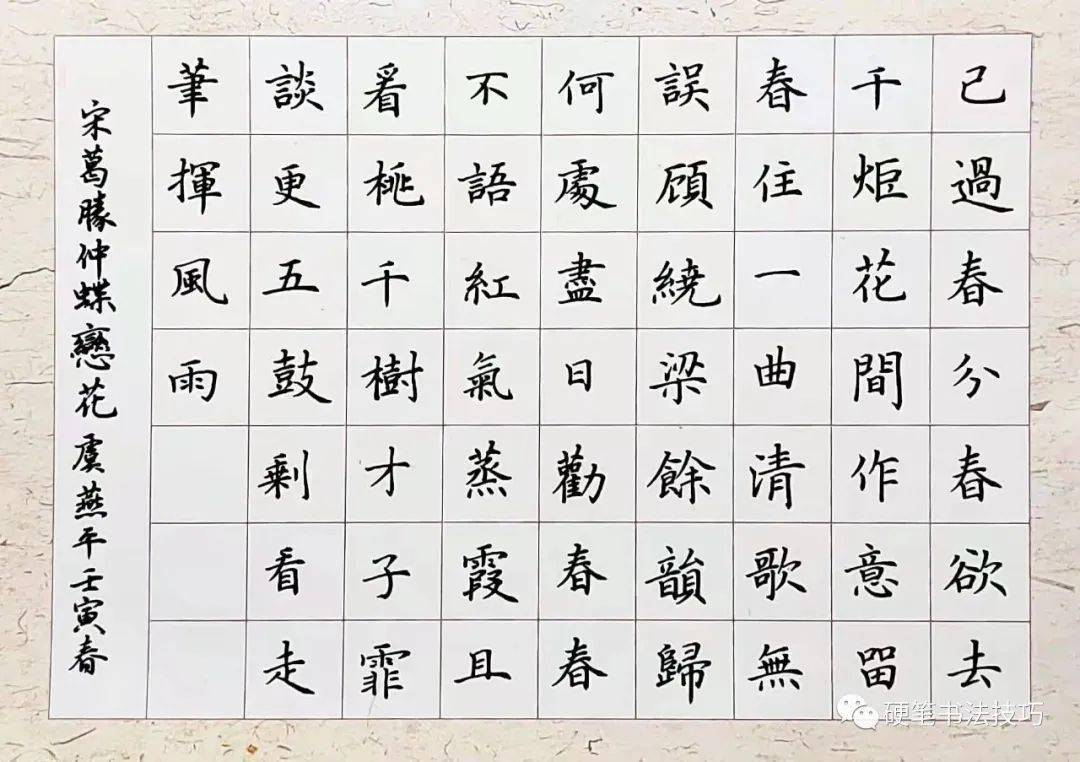 已過春分春欲去
千炬花間作意留
春住一曲清歌無
誤顧繞梁餘韻歸
何處盡日勸春春
不語紅氣蒸霞且
看桃千樹才子霏
談更五鼓剩看走
筆揮風雨
宋葛勝仲蝶戀花 虞燕平壬寅春
硬笔书法技巧